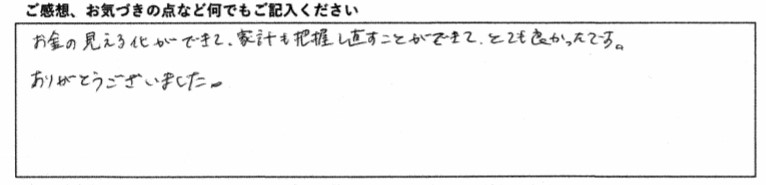 ご感想、お気づきの点など何でもご記入ください
お金の見える化ができて、家計も把握し直すことができて、とても良かったです。
ありがとうございました。